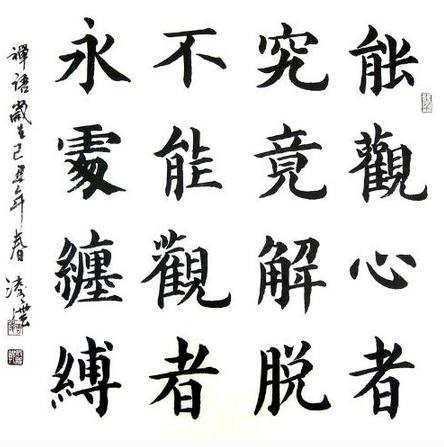 能觀心者
究竟解脱
不能觀者
永處纏縛
禪語歲在己丑年春